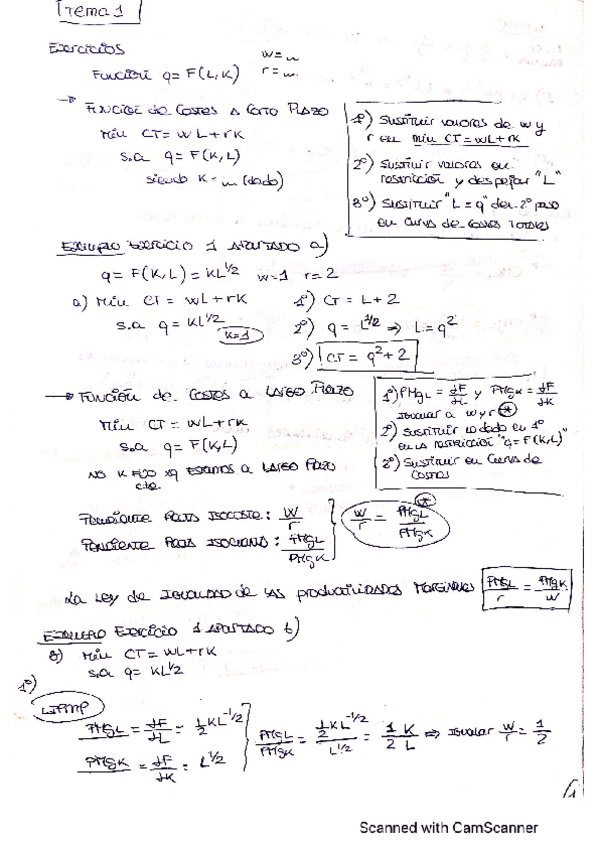 Tema 1
Ejercicios
Función q = F(L,K)
w = m
r = m
→ Función de Costes a Corto Plazo
Min CT = wL + rK
s.a q = F(K,L)
siendo K = m (dado)
1º) Sustituir valores de w y
r en Min CT = wL + rK
2º) Sustituir valores en
restricción y despejar "L"
3º) Sustituir "L = q" del 2º paso
en Curva de Costes Totales
Ejemplo Ejercicio 1 Apartado a)
q = F(K,L) = KL^1/2 w=1 r=2
a) Min CT = wL + rK
s.a q = KL^1/2
K=1
1º) CT = L + 2
2º) q = L^1/2 ⇒ L = q²
3º) CT = q² + 2
→ Función de Costes a Largo Plazo
Min CT = wL + rK
s.a q = F(K,L)
No K fijo xq estamos a Largo Plazo
cte
1º) PMgL = dF/dL y PMgK = dF/dK
Igualar a w y r *
2º) Sustituir lo dado en 1º
en la restricción "q = F(K,L)"
3º) Sustituir en Curva de
Costes
Pendiente Recta Isocoste: w/r
Pendiente Recta Isocuanta: PMgL/PMgK
w/r = PMgL/PMgK *
La Ley de Igualdad de las productividades Marginales PMgL/r = PMgK/w
Ejemplo Ejercicio 1 Apartado b)
b) Min CT = wL + rK
s.a q = KL^1/2
1º)
LIPMP
PMgL = dF/dL = 1/2 KL^-1/2
PMgK = dF/dK = L^1/2
PMgL/PMgK = 1/2 KL^-1/2 / L^1/2 = 1/2 K/L ⇒ Igualar w/r = 1/2
1
Scanned with CamScanner